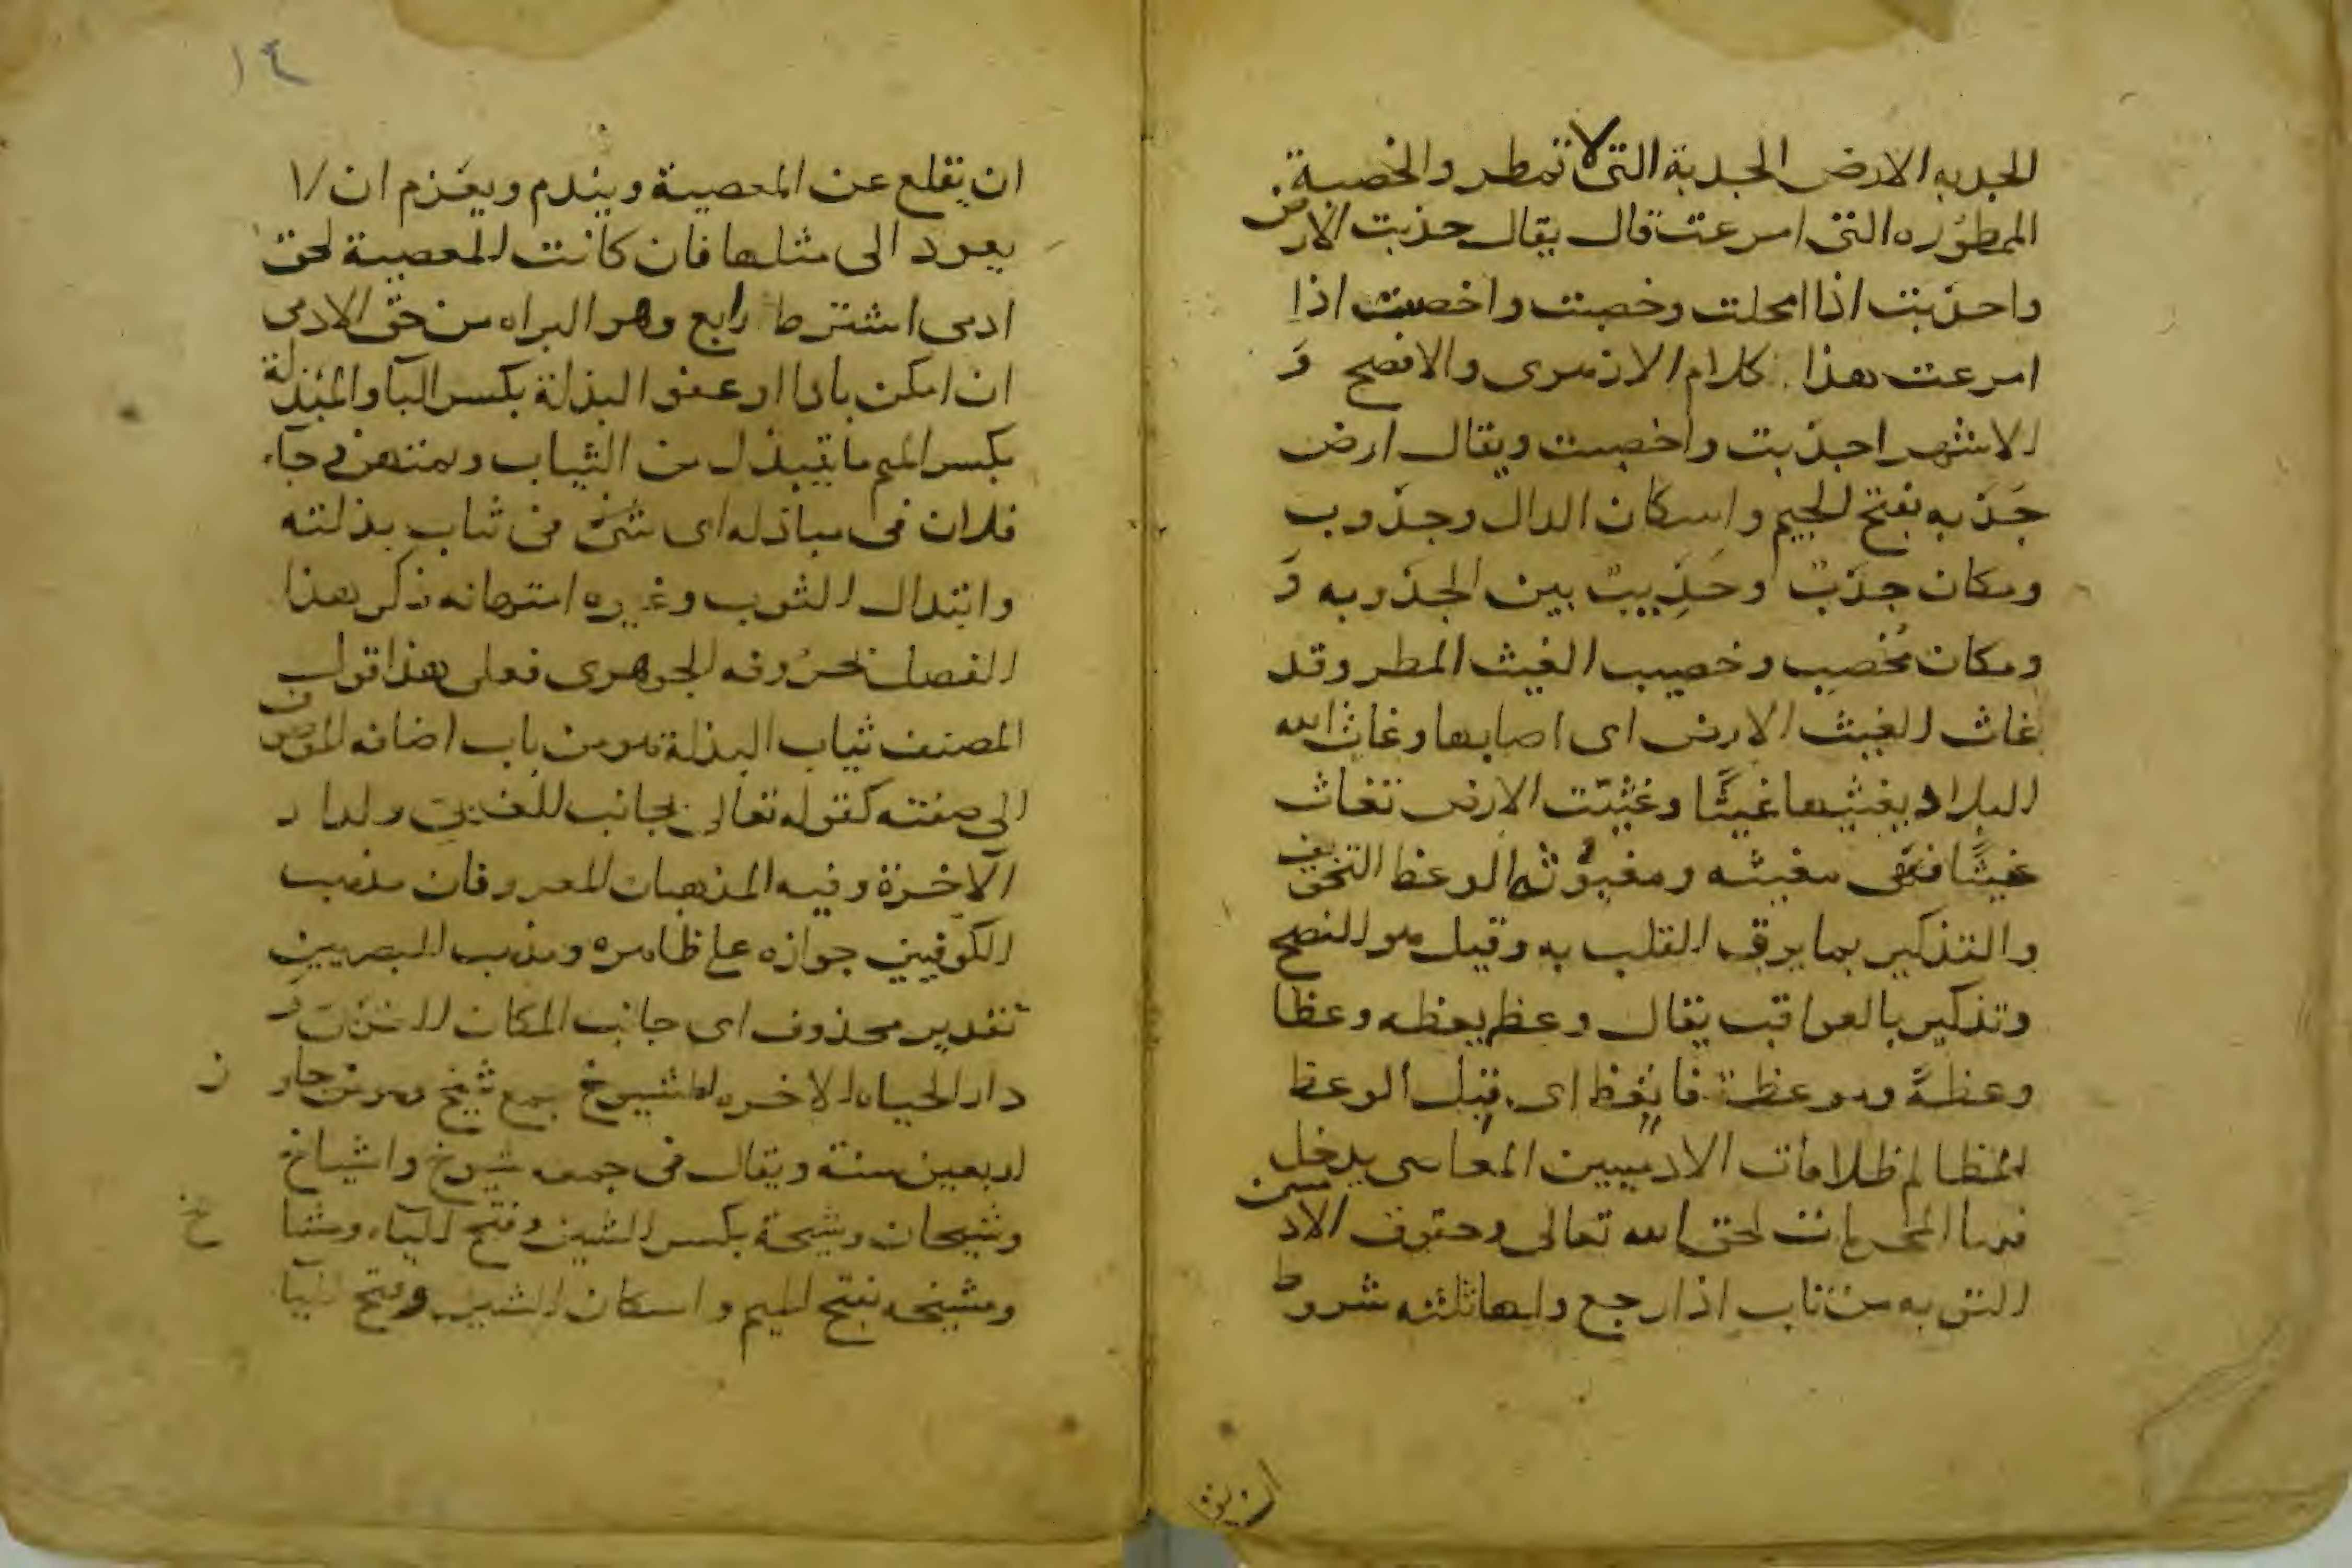 الجدبه الارض الجدبة التى لا تمطر والخصبة
الممطوره التى امرعت قال يقال جذبت الارض
واجذبت اذا امحلت وخصبت واخصبت اذا
امرعت هذا كلام الازهرى والافصح وَ
الاشهر اجذبت واخصبت ويقال ارض
جَذبه بفتح الجيم واسكان الدال وجذوب
ومكان جذب وجَذِيبٌ بين الجذوبه وَ
ومكان مُخصِب وخصيب الغيث المطر وقد
غاث الغيث الارض اى اصابها وغاث الله
البلاد يغيثها غيثًا وغُيِّثت الارض تغاث
غيثًا فهى مغيثه ومغيوثه الوعظ التخويف
والتذكير بما يرقق القلب به وقيل هو النصح
وتذكير بالعواقب يقال وعظ يعظه وعظا
وعظةً وموعظة فاتعظ اى قبل الوعظ
المظالم ظلامات الادميين المعاصى يدخل
فيها المحرمات لحق الله تعالى وحقوق الادميين
التوبه من تاب اذا رجع ولها ثلثه شروط
ان يقلع
١٤
ان يقلع عن المعصية ويندم ويعزم ان لا
يعود الى مثلها فان كانت المعصية لحق
ادمى اشترط رابع وهو البراه من حق الادمى
ان امكن بادا او عفو البذلة بكسر البا والمبذلة
بكسر الميم ما يتبذل من الثياب ويمتهن وجاء
فلان فى مباذله اى شئ من ثياب بذلته
وابتدال الثوب وغيره امتهانه ذكر هذا
الفصل بحروفه الجوهرى فعلى هذا قول
المصنف ثياب البذلة هو من باب اضافه الموصوف
الى صفته كقوله تعالى بجانب الغربى ولدار
الآخرة وفيه المذهبان المعروفان مذهب
الكوفيين جوازه على ظاهره ومذهب البصريين
تقدير محذوف اى جانب المكان الغربى و
دار الحياه الاخره الشيوخ جمع شيخ وهو من جاوز
اربعين سنة ويقال فى جمعه شيوخ واشياخ
وشيخان وشيخة بكسر الشين وفتح الياء ومشايخ
ومشيخه بفتح الميم واسكان الشين وفتح اليا